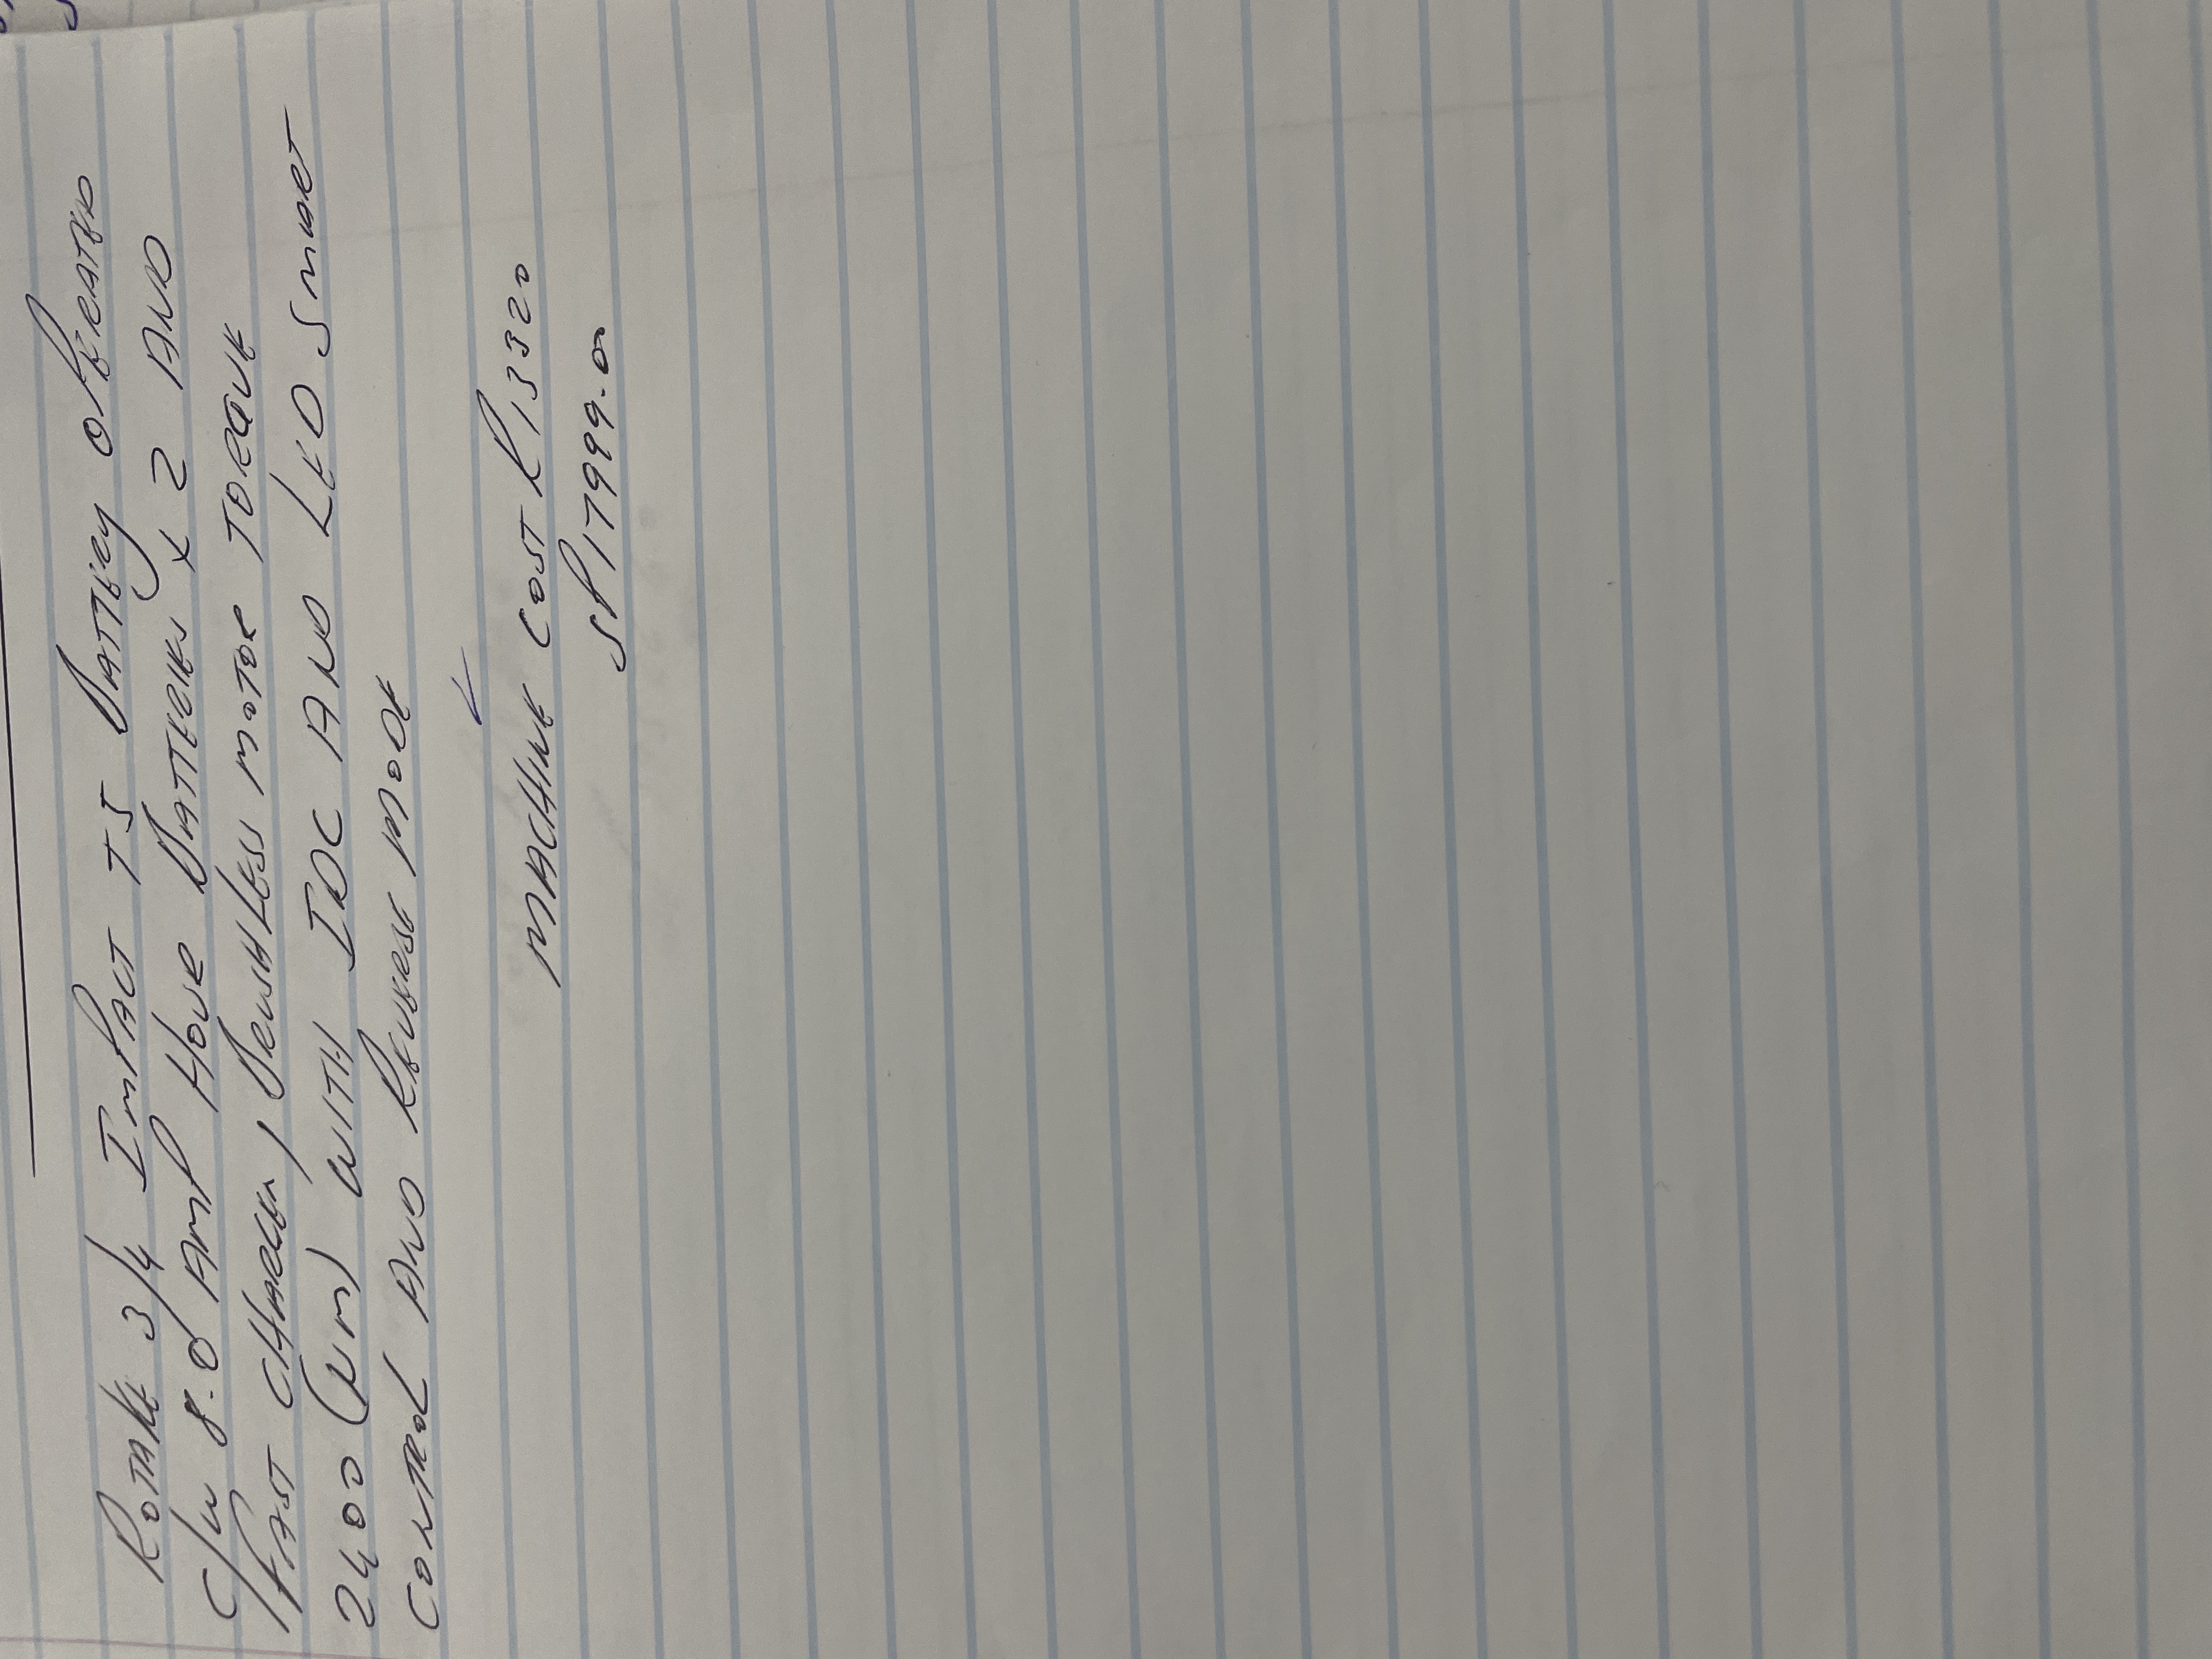 ROTAKE 3/4 IMPACT T5 BATTERY OPERATED
C/W 8.0 AMP HOUR BATTERIES x 2 AND
FAST CHARGER, BRUSHLESS MOTOR TORQUE
2400 (NM) WITH IDC AND LED SMART
CONTROL AND REVERSE MODE
MACHINE COST R13320
SP 17999.00